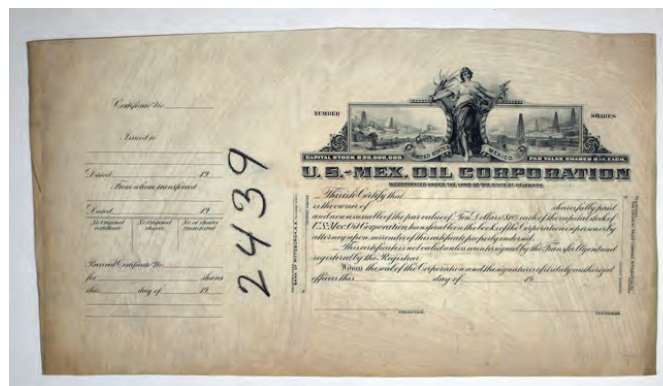 Certificate No.
Issued to
Dated 19
From whom transferred
Dated 19
No. original certificate No. original shares No. of shares transferred
Received Certificate No.
for shares
this day of 19
2439
NUMBER
SHARES
UNITED STATES
MEXICO
CAPITAL STOCK $20,000,000.
PAR VALUE SHARES $10. EACH.
U.S.-MEX. OIL CORPORATION
INCORPORATED UNDER THE LAWS OF THE STATE OF DELAWARE.
This is to Certify that
is the owner of shares fully paid
and non-assessable of the par value of Ten Dollars ($10) each of the capital stock of
U.S.-Mex. Oil Corporation transferable on the books of the Corporation in person or by
attorney upon surrender of this certificate properly endorsed.
This certificate is not valid unless countersigned by the Transfer Agent and
registered by the Registrar.
Witness the seal of the Corporation and the signatures of its duly authorized
officers this day of 19